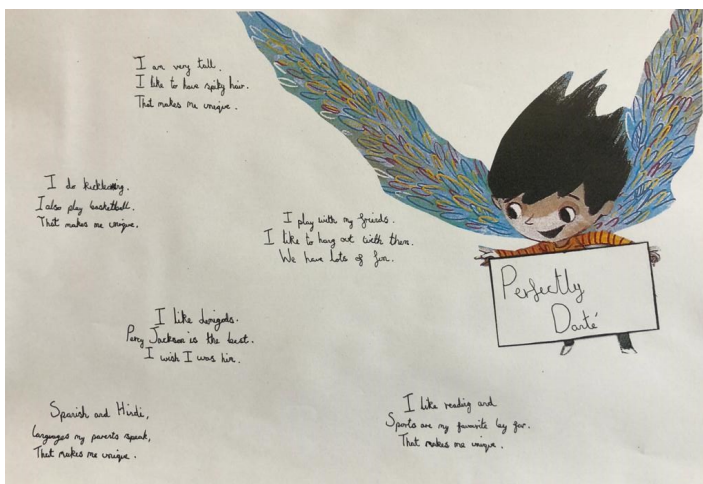 I am very tall.
I like to have spiky hair.
That makes me unique.
I do kickboxing.
I also play basketball.
That makes me unique.
I play with my friends.
I like to hang out with them.
We have lots of fun.
Perfectly
Darté
I like demigods.
Percy Jackson is the best.
I wish I was him.
Spanish and Hindi,
languages my parents speak,
That makes me unique.
I like reading and
Sports are my favourite by far.
That makes me unique.